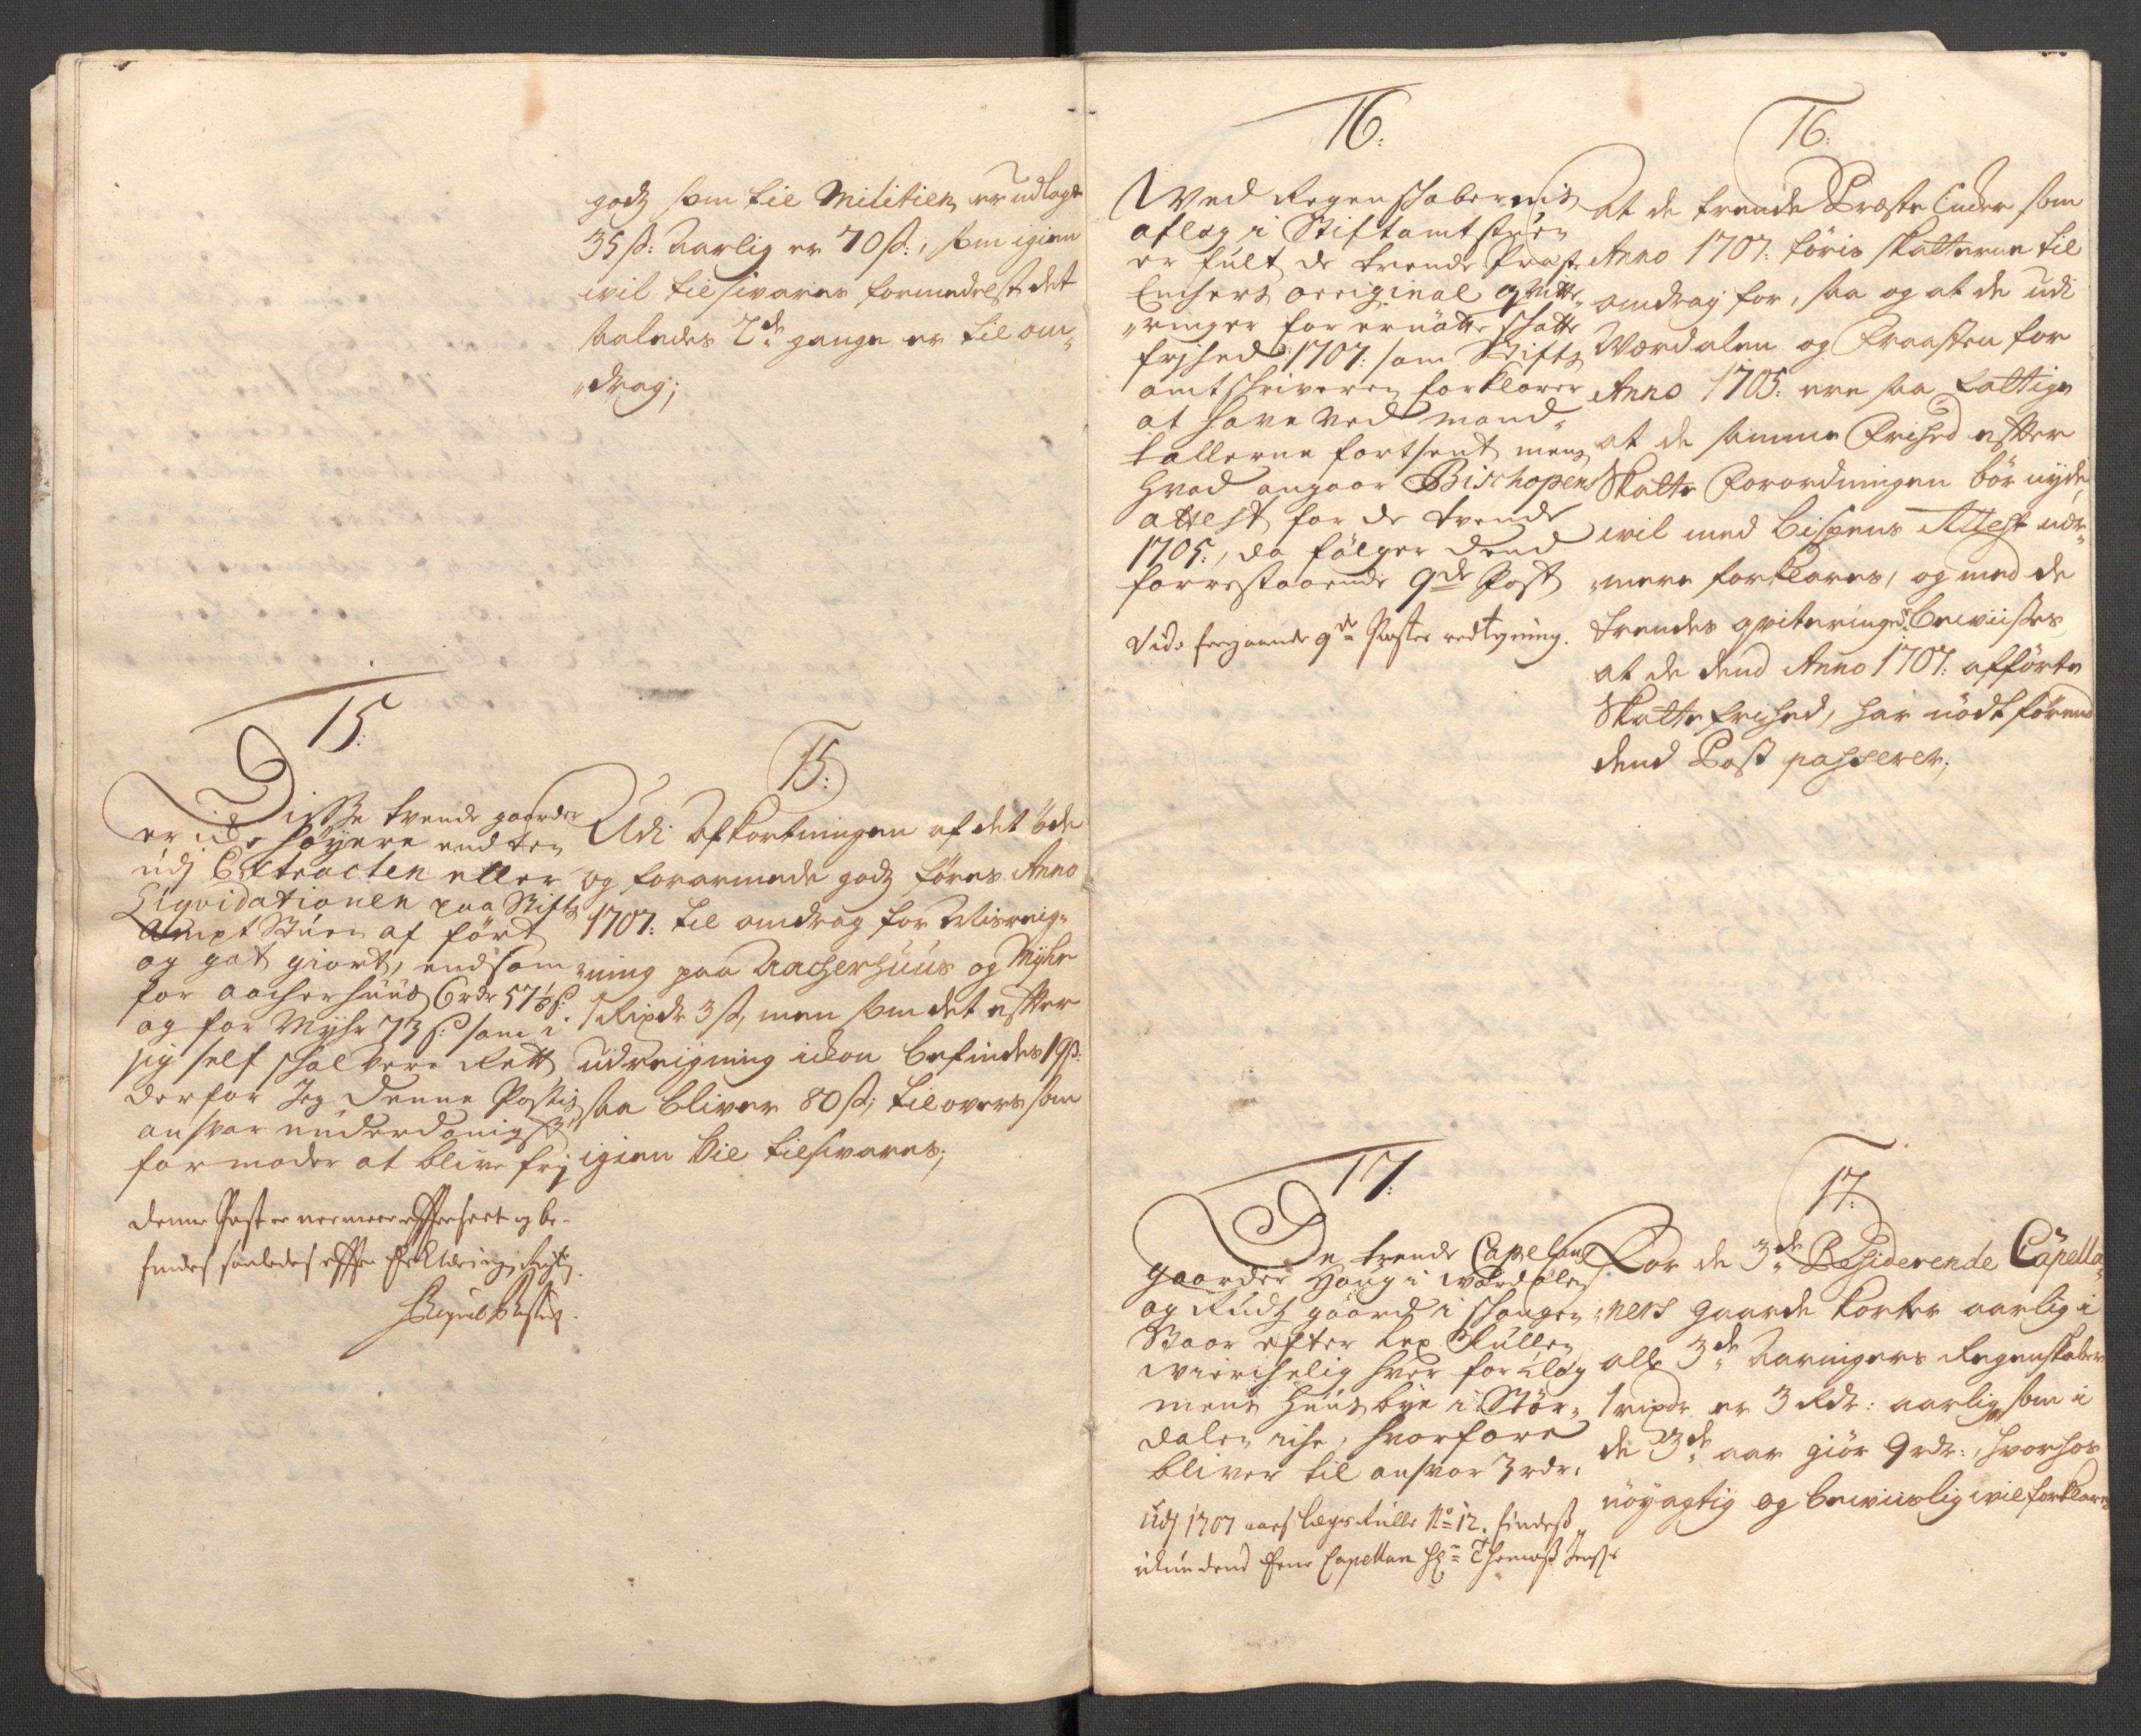 godz som til Militien er udlagt
35 s: Aarlig er 70 s:, som igien
wil tilsvares formedelst det
saaledes 2de gange er til om¬
drag;
15.
Disse tvende gaarder
er icke høyere end den
udj Extracten eller
Liqvidationen paa Stiftz
Ampt Stuen af ført
og got giort, endsom
for Aacherhuus 6 rdr 57½ s:
og for Myhr 73 s: som i
sig self schal være Rett
derfor Jeg denne Postis
ansvar underdanigst
formoder at blive frj
denne Post er nermere effterseet og be-
findes saaledes efter Erklæringen rigtig.
15:
Udi Afkortningen af det öde
og forarmede godz föres Anno
1707: til omdrag for Misreig¬
ning paa Aacherhuus og Myhr
1 Rixdr 3 s, men som det efter
udreigning ickon befindes 19 s:
saa bliver 80 s; tilovers som
igien bie tilsvares;
16.
Wed Regenschabernis
aflæg i Stiftamtstuen
er fult de trende Præste
Enchers original qvitte¬
ringer for ernötte schatte
frihed 1707: som Stiftz
amtschriveren forklarer
at have ved mand¬
tallerne fortsent, mens
hvad angaar Bischopens
attest for de tvende
1705:, da fölger dend
forrestaaende 9de Post
Vide forgaaende 9de Postes
16:
At de trende Præste Encker som
Anno 1707: föris skatterne til
omdrag for, saa og at de udi
Wærdalen og Fraasten for
Anno 1705: ere saa fattige
at de samme Frihed efter
Skatte Forordningen bör nyde,
wil med Bispens Attest ner¬
mere forklares, og med de
trendes qvitteringer bewiises
at de dend Anno 1707: afförte
Skatte frihed, har nödt förend
dend Post passerer;
17.
De trende Capelans
gaarder Haug i Wærdalen
og Ruds gaard i Schougen
Staar efter Lex Rullen
wierchelig hver for 1 læg
mens Huusbye i Stör¬
dalen iche, hvorfore
bliver til ansvar 3 rdr.
Udj 1707 aars Lægs Rulle No 12. findes
ickun dend Eene Capellan Hr Thomas
17.
For de 3de Residerende Capella¬
ners gaarde korter aarlig i
alle 3de Aaringers Regenskaber
1 rixdr er 3 Rdr: aarlig som i
de 3de aar giör 9 rdr:, hvorhos
nöyagtig og bewiislig wil forklares